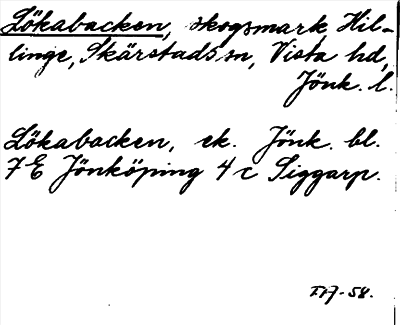 Lökabacken, skogsmark, Hil-
linge, Skärstads sn, Vista hd,
Jönk. l.
Lökabacken, ek. Jönk. bl.
7E Jönköping 4 c Siggarp.
-58.